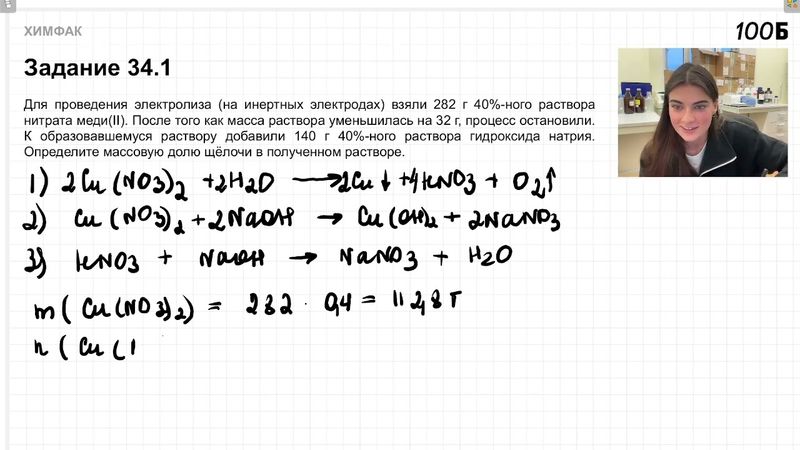 ХИМФАК
100Б
Задание 34.1
Для проведения электролиза (на инертных электродах) взяли 282 г 40%-ного раствора
нитрата меди(II). После того как масса раствора уменьшилась на 32 г, процесс остановили.
К образовавшемуся раствору добавили 140 г 40%-ного раствора гидроксида натрия.
Определите массовую долю щёлочи в полученном растворе.
1) 2Cu(NO3)2 + 2H2O → 2Cu↓ + 4HNO3 + O2↑
2) Cu(NO3)2 + 2NaOH → Cu(OH)2 + 2NaNO3
3) HNO3 + NaOH → NaNO3 + H2O
m(Cu(NO3)2) = 282 · 0,4 = 112,8 г
n(Cu(